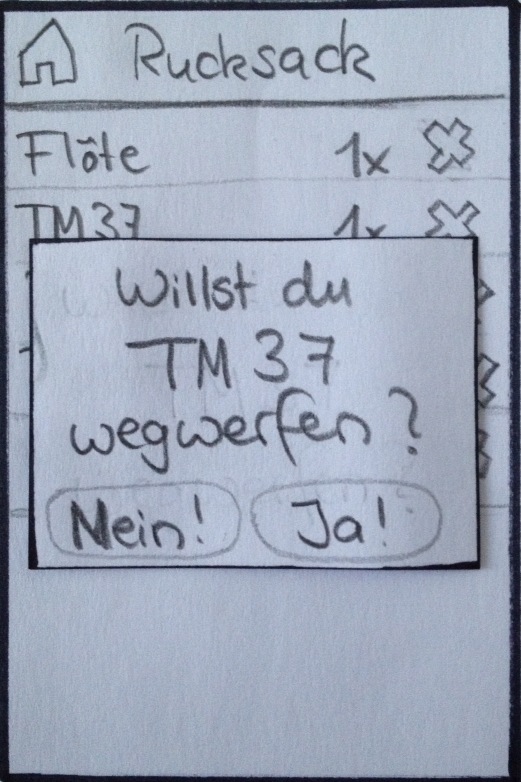 Rucksack
Flöte 1x
TM37 1x
Willst du
TM 37
wegwerfen?
Nein! Ja!